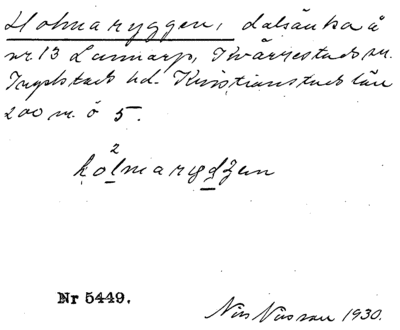 Holmaryggen, dalsänka å
nr. 13 Lunnarp, Tvärrestads sn.
Ingelstads hd. Kristianstads län
200 m. ö 5.
2
holmarydʒen
Nr 5449.
Nils Nilsson 1930.